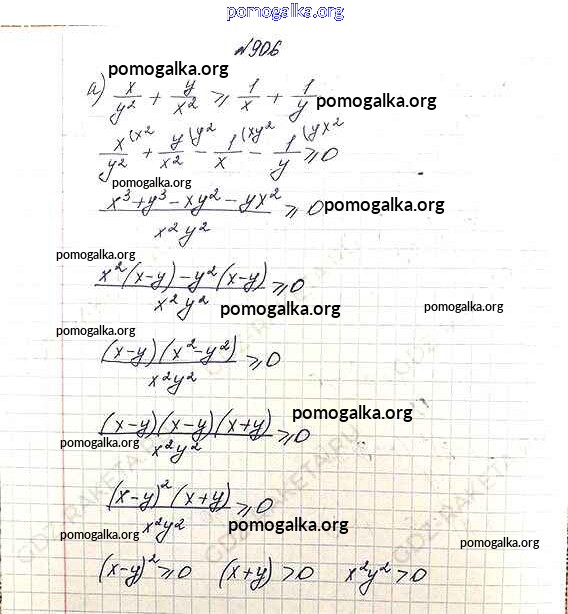 pomogalka.org
№906
pomogalka.org
а) x/y² + y/x² ⩾ 1/x + 1/y pomogalka.org
x(x²/y² + y(y²/x² − 1(xy²/x − 1(yx²/y ⩾ 0
pomogalka.org
x³+y³−xy²−yx²/x²y² ⩾ 0 pomogalka.org
pomogalka.org
x²(x−y)−y²(x−y)/x²y² ⩾ 0
pomogalka.org pomogalka.org
pomogalka.org
(x−y)(x²−y²)/x²y² ⩾ 0
pomogalka.org
(x−y)(x−y)(x+y)/x²y² ⩾ 0
pomogalka.org
(x−y)²(x+y)/x²y² ⩾ 0
pomogalka.org
pomogalka.org pomogalka.org
(x−y)² ⩾ 0 (x+y) > 0 x²y² > 0